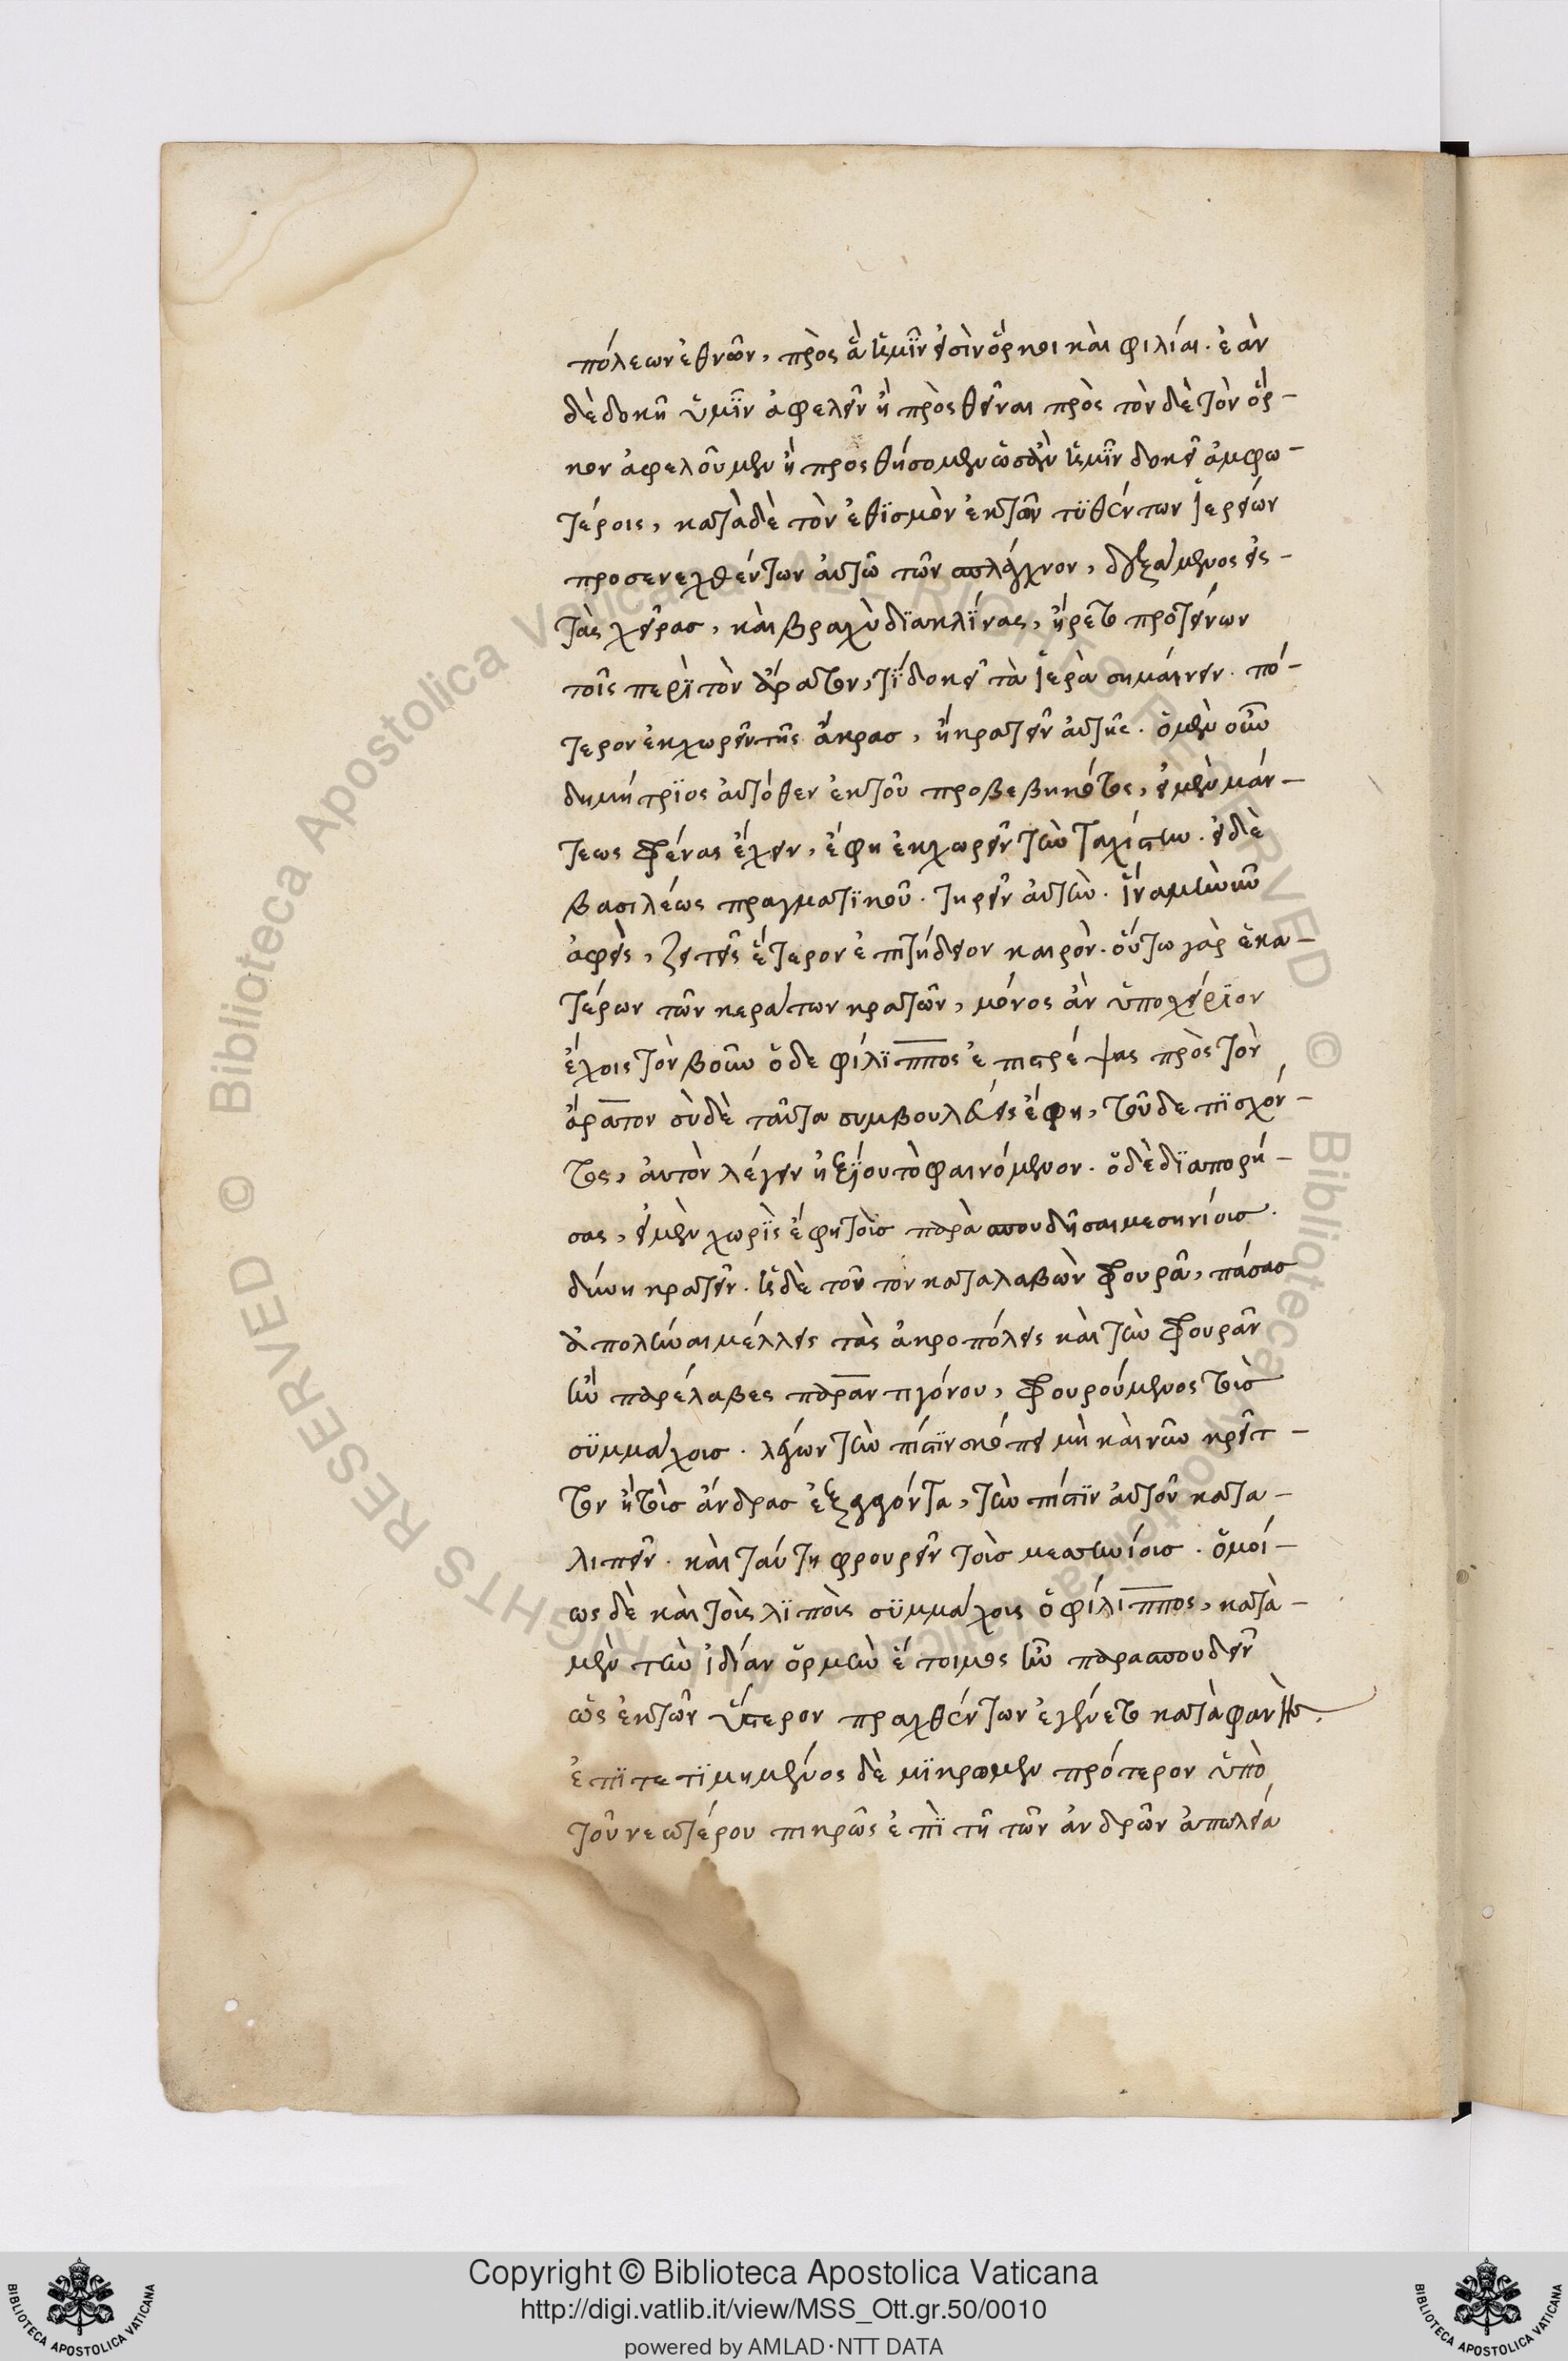 πόλεων ἐθνῶν, πρὸς ἃ ἡμῖν εἰσὶν ὅρκοι καὶ φιλίαι. ἐὰν
δὲ δοκῆ ὑμῖν ἀφελεῖν ἢ πρὸς θεῖναι πρὸς τὸν δὲ τὸν ὅρ-
κον ἀφελοῦμεν ἢ προς θήσομεν ὡσὰν ἡμῖν δοκεῖ ἀμφω-
τέροις, κατὰ δὲ τὸν ἐθϊσμὸν ἐκ τῶν τϋθέντων ἱερείων
προσενεχθέντων αὐτῶ τῶν σπλάγχνον, δεξάμενος εἰς
τὰς χεῖρασ, καὶ βραχὺ δϊακλίνας, ἤρετο προτείνων
τοῖς περὶ τὸν ἄρατον, τί δοκεῖ τὰ ἱερὰ σημαίνειν. πό-
τερον ἐκχωρεῖν τῆς ἄκρασ, ἢ κρατεῖν αὐτῆς. ὁ μὲν οὖν
δημήτρϊος αὐτόθεν ἐκ τοῦ προβεβηκότος, εἰ μὲν μάν-
τεως φρένας ἔχειν, ἔφη ἐκχωρεῖν τὴν ταχίστην. εἰ δὲ
βασιλέως πραγματϊκοῦ. τηρεῖν αὐτὴν. ἵνα μὴ νῦν
ἀφεὶς, ζητεῖς ἕτερον ἐπιτήδειον καιρὸν. οὕτω γὰρ ἑκα-
τέρων τῶν κεράτων κρατῶν, μόνος ἂν ὑποχείρϊον
ἔχοις τὸν βοῦν ὁ δε φίλϊππος ἐπιστρέψας πρὸς τὸν
ἄρατον σὺ δὲ ταῦτα συμβουλεύεις ἔφη, τοῦ δε πϊσχόν-
τος, αυτὸν λέγειν ἠξίου τὸ φαινόμενον. ὁ δὲ δϊαπορή-
σας, εἰ μὲν χωρὶς ἔφη τοῖσ παρὰσπουδῆσαι μεσηνίοισ.
δύνη κρατεῖν. εἰ δὲ τοῦτον καταλαβὼν φρουρᾶ, πάσασ
ἀπολύναι μέλλεις τὰς ἀκροπόλεις καὶ τὴν φρουρὰν
ἣν παρέλαβες παρ αν τιγόνου, φρουρούμενος τοὺσ
σϋμμάχοισ. λέγων τὴν πίστϊν σκόπει μὴ καὶ νῦν κρεῖτ-
τον ἢ τοὺσ ἄνδρασ ἐξαγαγόντα, τὴν πίστϊν αὐτοῦ κατα-
λιπεῖν. καὶ ταύτη φρουρεῖν τοὺσ μεσηνίοισ. ὁμοί-
ως δὲ καὶ τοὺς λϊποὺς σϋμμάχοις ὁ φίλιππος, κατὰ-
μὲν τὴν ἰδίαν ὁρμὴν ἕτοιμος ἦν παρασπουδεῖν
ὡς ἐκ τῶν ὕστερον πραχθέντων ἐγένετο κατὰφανὴσ.
ἐπϊτετϊμημένος δὲ μϊκρωμεν πρότερον ὑπὸ
τοῦ νεωτέρου πικρῶς ἐπὶ τῆ τῶν ἀνδρῶν ἀπωλεία
Copyright © Biblioteca Apostolica Vaticana
http://digi.vatlib.it/view/MSS_Ott.gr.50/0010
powered by AMLAD·NTT DATA
BIBLIOTECA APOSTOLICA VATICANA
BIBLIOTECA APOSTOLICA VATICANA
© Biblioteca Apostolica Vaticana ALL RIGHTS RESERVED